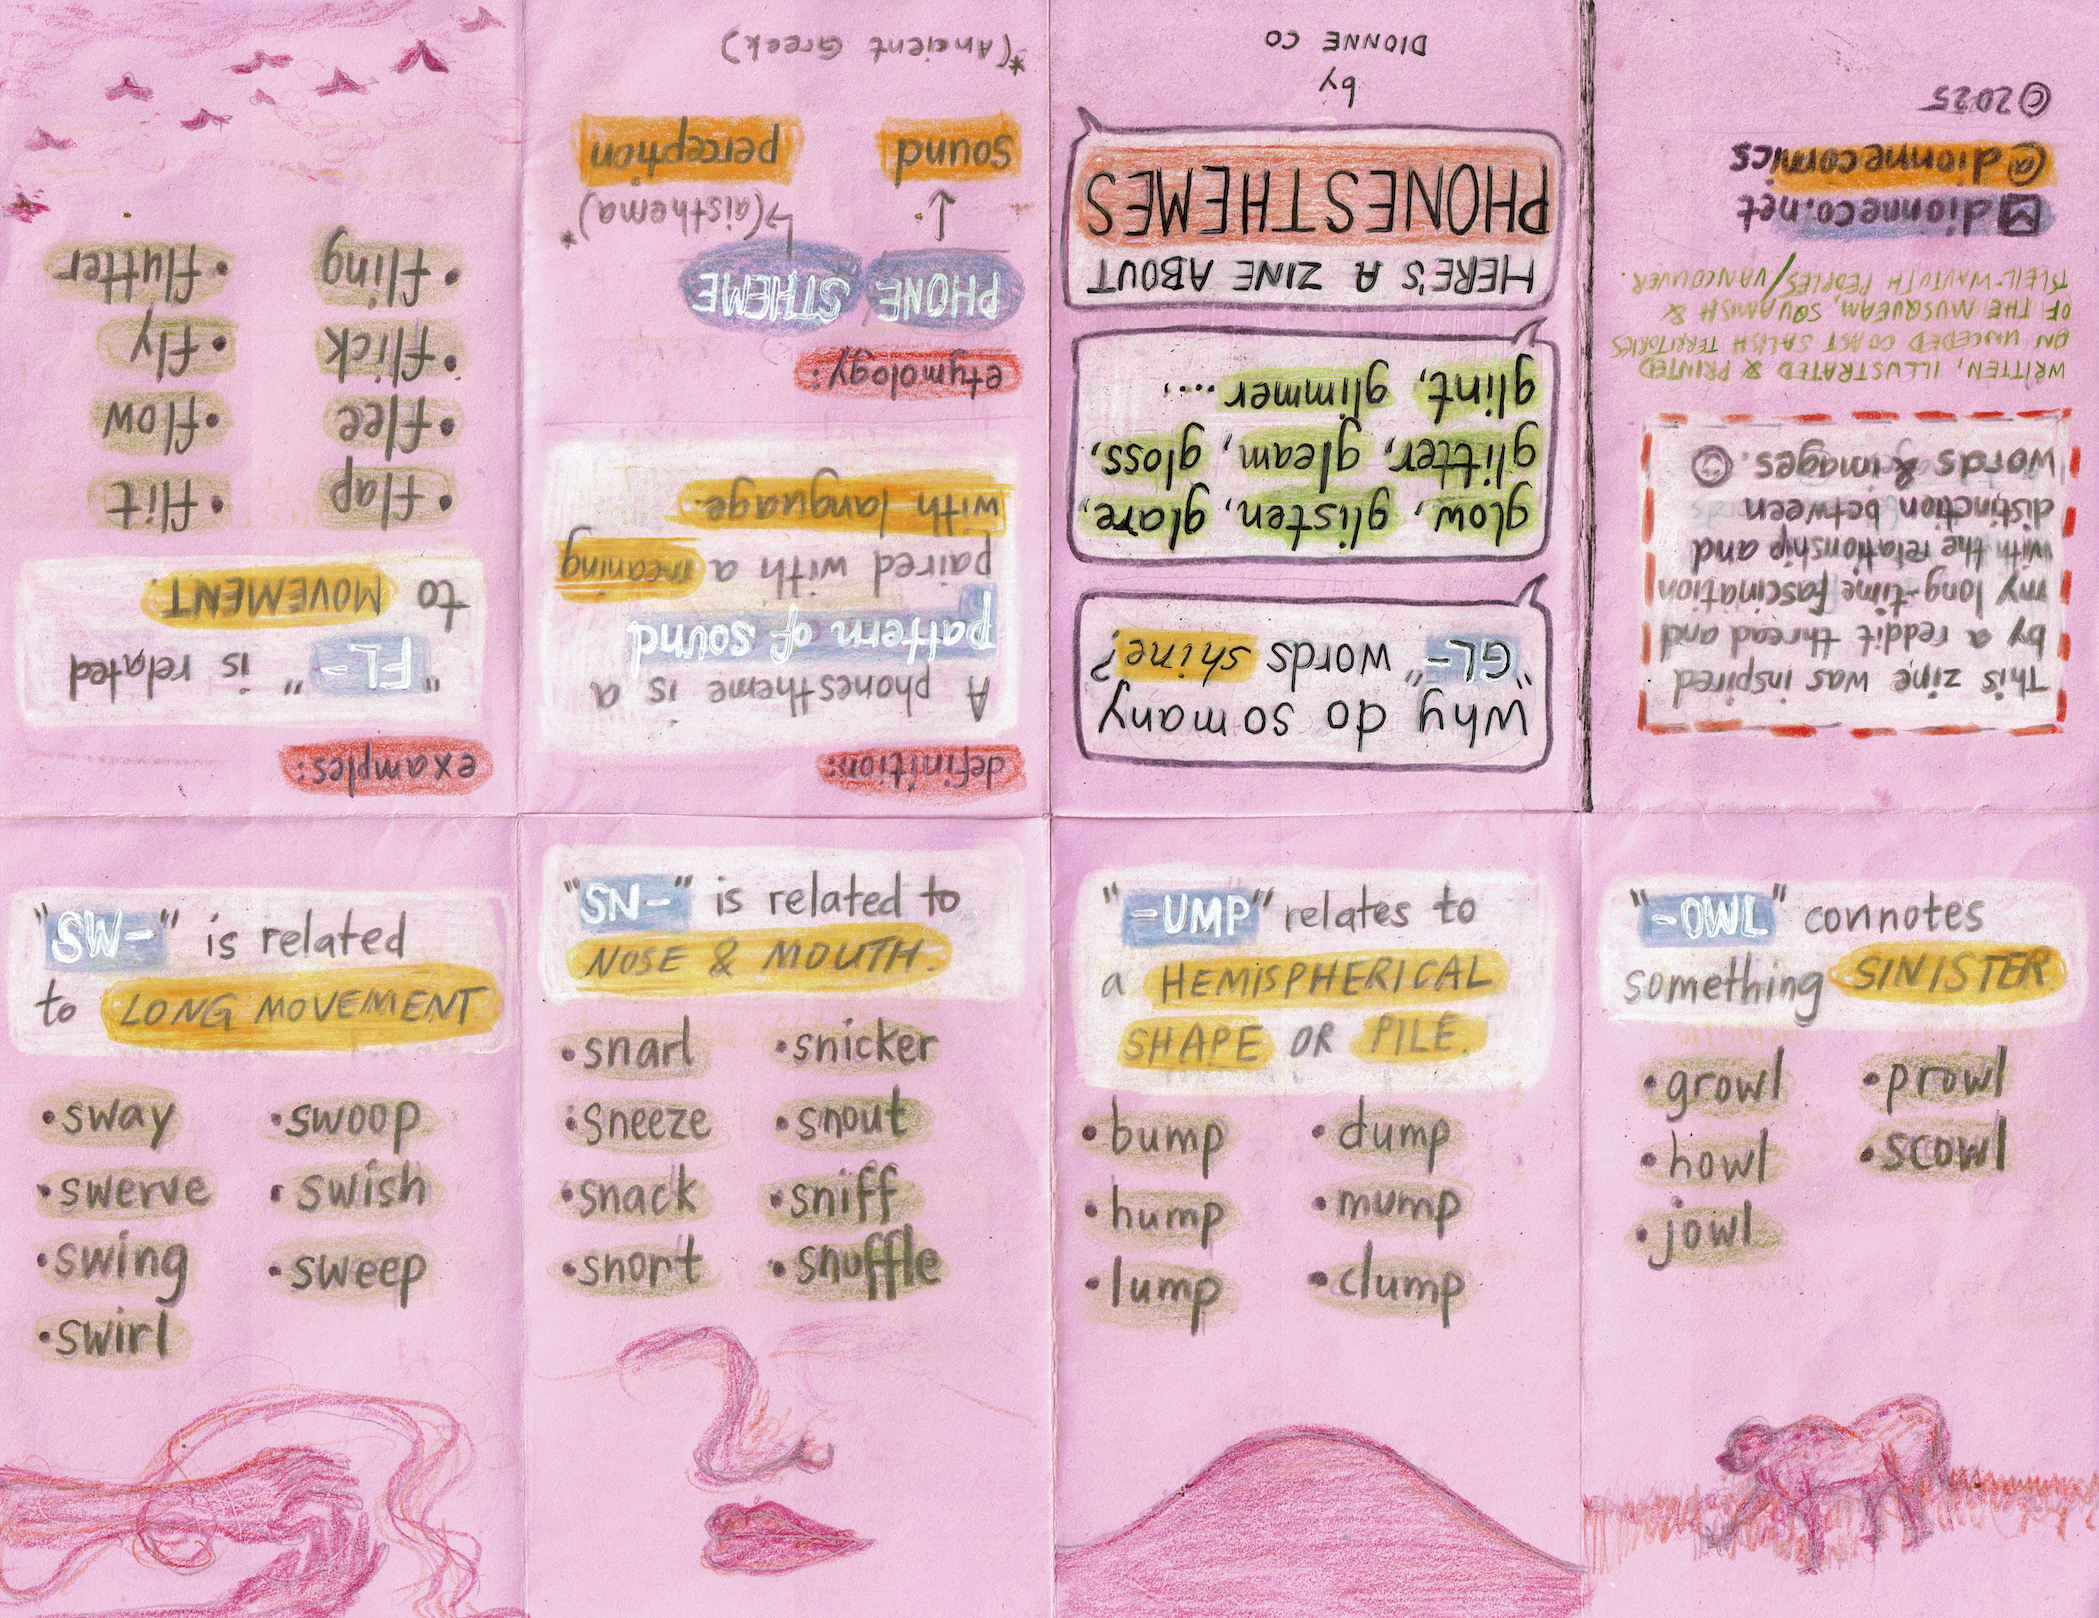 Why do so many
"GL-" words shine?
glow, glisten, glare,
glitter, gleam, gloss,
glint, glimmer....,
HERE'S A ZINE ABOUT
PHONESTHEMES
by
DIONNE CO
definition:
A phonestheme is a
pattern of sound
paired with a meaning
with language.
etymology:
PHONE STHEME
(aisthema)*
sound perception
*(Ancient Greek)
examples:
"FL-" is related
to MOVEMENT.
• flap • flit
• flee • flow
• flick • fly
• fling • flutter
"SW-" is related
to LONG MOVEMENT.
• sway • swoop
• swerve • swish
• swing • sweep
• swirl
"SN-" is related to
NOSE & MOUTH.
• snarl • snicker
• sneeze • snout
• snack • sniff
• snort • snuffle
"-UMP" relates to
a HEMISPHERICAL
SHAPE OR PILE.
• bump • dump
• hump • mump
• lump • clump
"-OWL" connotes
something SINISTER
• growl • prowl
• howl • scowl
• jowl
This zine was inspired
by a reddit thread and
my long-time fascination
with the relationship and
distinction between
words & images.
WRITTEN, ILLUSTRATED & PRINTED
ON UNCEDED COAST SALISH TERRITORIES
OF THE MUSQUEAM, SQUAMISH &
TSLEIL-WAUTUTH PEOPLES/VANCOUVER.
dionneco.net
@dionnecomics
©2025